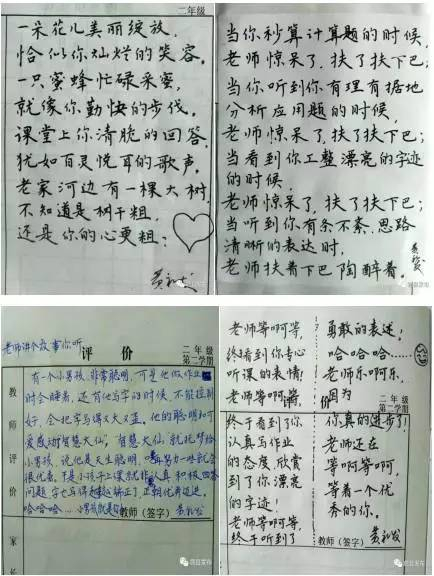 二年级
一朵花儿美丽绽放,
恰似你灿烂的笑容。
一只蜜蜂忙碌采蜜,
就像你勤快的步伐。
课堂上你清脆的回答,
犹如百灵悦耳的歌声。
老家河边有一棵大树,
不知道是树干粗,
还是你的心更粗?
当你秒算计算题的时候,
老师惊呆了,扶了扶下巴;
当你听到你有理有据地
分析应用题的时候,
老师惊呆了,扶了扶下巴;
当看到你工整漂亮的字迹
的时候,
老师惊呆了,扶了扶下巴;
当听到你有条不紊、思路
清晰的表达时,
老师扶着下巴陶醉着。
老师讲个故事你听
评 价
二年级
第二学期
教师评价
有一个小男孩,非常聪明,可是他做作业
时会瞌睡,还有他写字的时候,不能控制
好,会把字写得又大又歪。他的聪明和可
爱感动了智慧大仙,智慧大仙就托梦给
小男孩,说他是天生聪明,再努力一些就会
很优秀。于是小孩子上课就非常认真,积极回答
问题,字也写得越来越端正了,正朝优秀迈进。
哈哈哈…小男孩就是你
教师(签字)
家长
老师等啊等,
终看到你专心
听课的表情!
老师等啊等,
终于看到了你
认真写作业
的态度,欣赏
到了你漂亮
的字迹!
老师等啊等,
终于听到了
勇敢的表述!
哈哈哈……
老师乐啊乐,
因为
价
二年级
第二学期
你真的进步了!
老师还在
等啊等啊,
等着一个优
秀的你。
教师(签字)